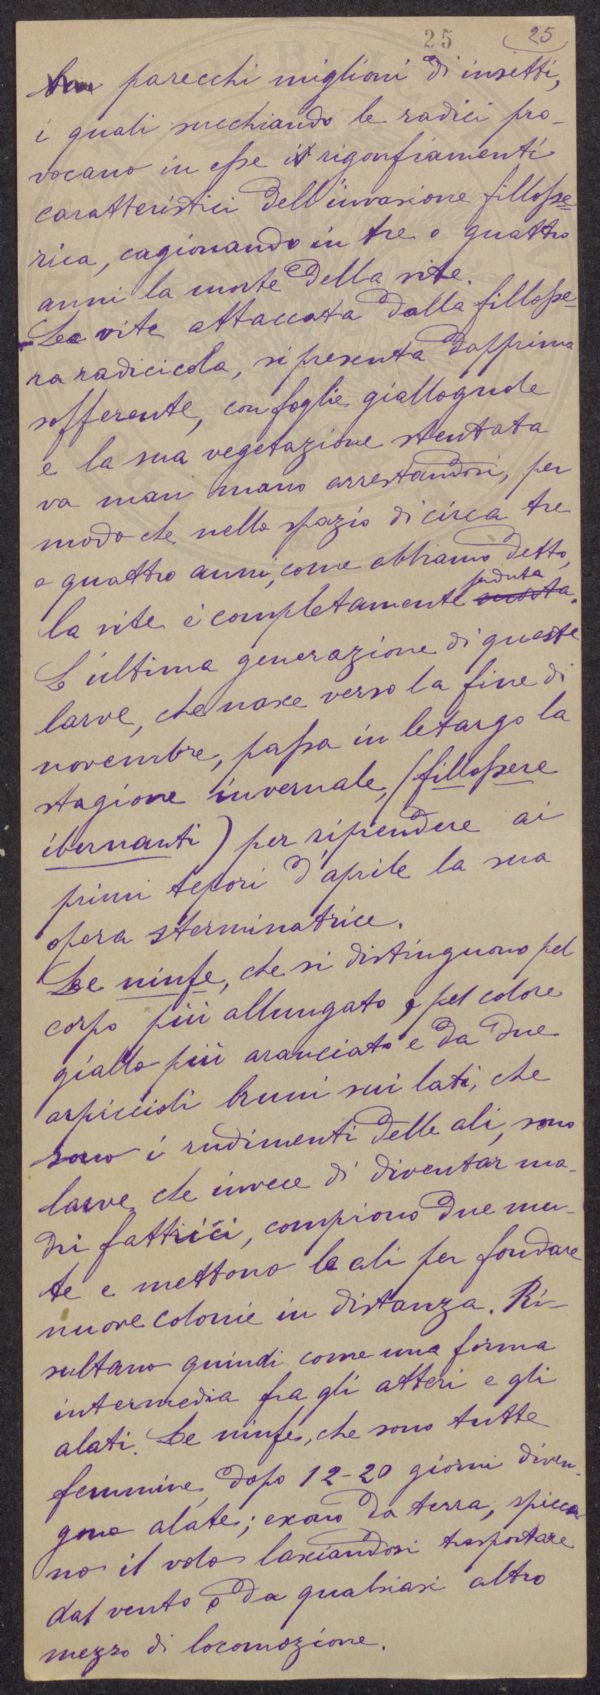 25 25
parecchi miglioni di insetti,
i quali succhiando le radici pro-
vocano in esse i rigonfiamenti
caratteristici dell'invasione fillosse-
rica, cagionando in tre o quattro
anni la morte della vite.
La vite attaccata dalla fillosse-
ra radicicola, si presenta dapprima
sofferente, con foglie giallognole
e la sua vegetazione stentata
va man mano arrestandosi, per
modo che nello spazio di circa tre
o quattro anni, come abbiamo detto,
la vite è completamente perduta.
L'ultima generazione di queste
larve, che nasce verso la fine di
novembre, passa in letargo la
stagione invernale, (fillossere
ibernanti) per riprendere ai
primi tepori d'aprile la sua
opera sterminatrice.
Le ninfe, che si distinguono pel
corpo più allungato, pel colore
giallo più aranciato e da due
arpiccioli bruni sui lati, che
sono i rudimenti delle ali, sono
larve che invece di diventar ma-
dri fattrici, compiono due mu-
te e mettono le ali per fondare
nuove colonie in distanza. Ri-
sultano quindi come una forma
intermedia fra gli atteri e gli
alati. Le ninfe, che sono tutte
femmine, dopo 12-20 giorni diven-
gono alate; escono da terra, spicca
no il volo lasciandosi trasportare
dal vento o da qualsiasi altro
mezzo di locomozione.